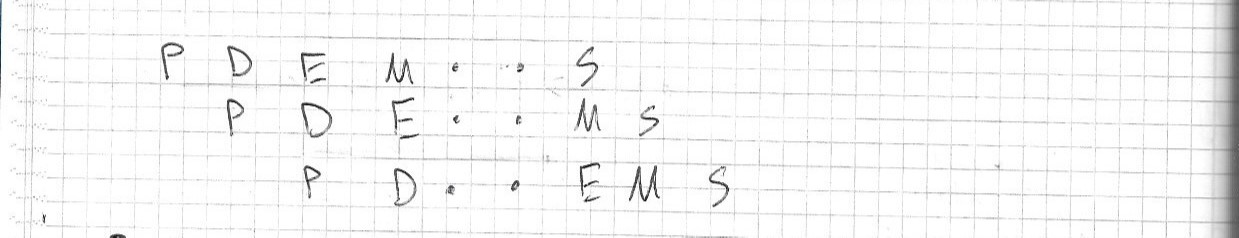 P D E M . . S
P D E . . M S
P D . . E M S